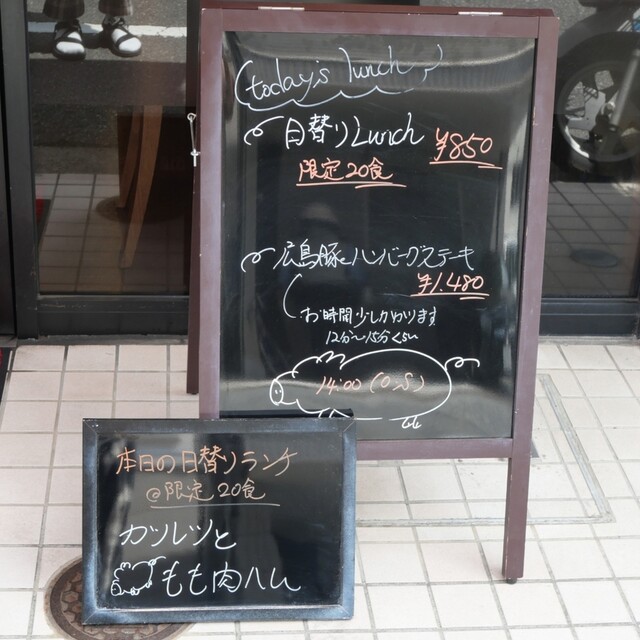 today's lunch
日替りLunch ¥850
限定20食
広島豚ハンバーグステーキ
¥1.480
お時間少しかかります
12分〜15分くらい
14:00 (O.S)
本日の日替りランチ
@限定20食
カツレツと
もも肉ハム